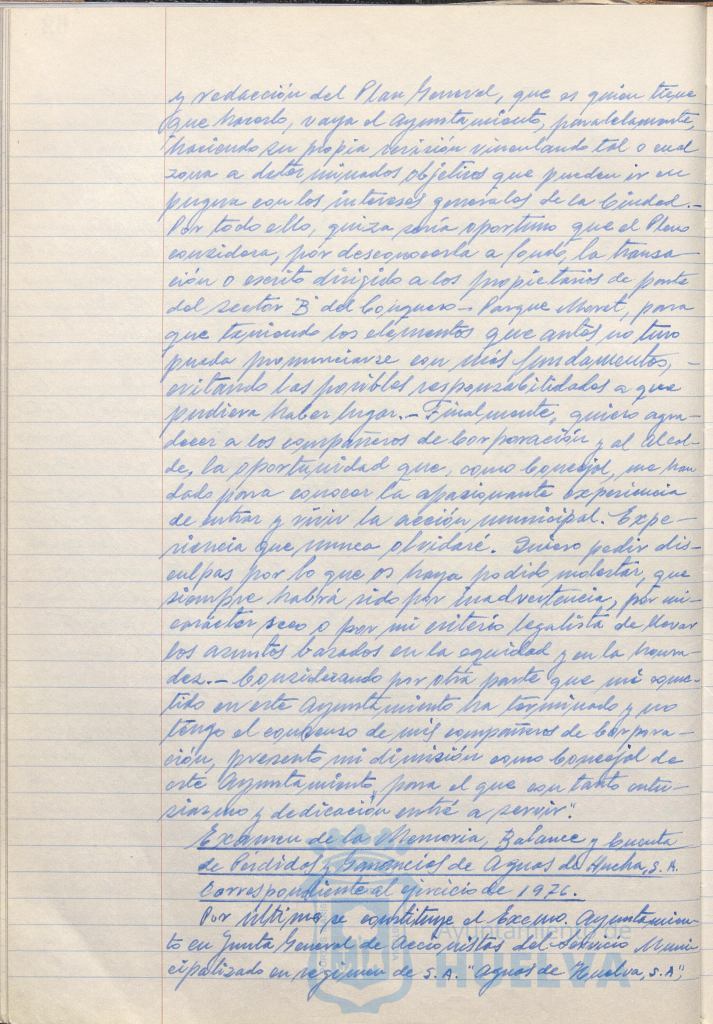 y redacción del Plan General, que es quien tiene
que hacerlo, vaya el Ayuntamiento, paralelamente,
haciendo su propia revisión vinculando tal o cual
zona a determinados objetivos que pueden ir en
pugna con los intereses generales de la Ciudad.-
Por todo ello, quiza sería oportuno que el Pleno
considera, por desconocerla a fondo, la transa-
ción o escrito dirigido a los propietarios de parte
del sector "B" del Conquero - Parque Moret, para
que teniendo los elementos que antes no tuvo
pueda pronunciarse con más fundamentos,
evitando las posibles responsabilidades a que
pudiera haber lugar.- Finalmente, quiero agra-
decer a los compañeros de Corporación y al Alcal-
de, la oportunidad que, como Concejal, me han
dado para conocer la apasionante experiencia
de entrar y vivir la acción municipal. Expe-
riencia que nunca olvidaré. Quiero pedir dis-
culpas por lo que os haya podido molestar, que
siempre habrá sido por inadvertencia, por mi
carácter seco o por mi criterio legalista de llevar
los asuntos basados en la equidad y en la honra-
dez.- Considerando por otra parte que mi come-
tido en este Ayuntamiento ha terminado y no
tengo el consenso de mis compañeros de Corpora-
ción, presento mi dimisión como Concejal de
este Ayuntamiento, para el que con tanto entu-
siasmo y dedicación entré a servir".
Examen de la Memoria, Balance y Cuenta
de Perdidas y Ganancias de Aguas de Huelva, S.A.
Correspondiente al ejercicio de 1976.
Por último, se constituye el Excmo. Ayuntamien-
to en Junta General de Accionistas del Servicio Muni-
cipalizado en régimen de S.A. "Aguas de Huelva, S.A",
Ayuntamiento de
HUELVA